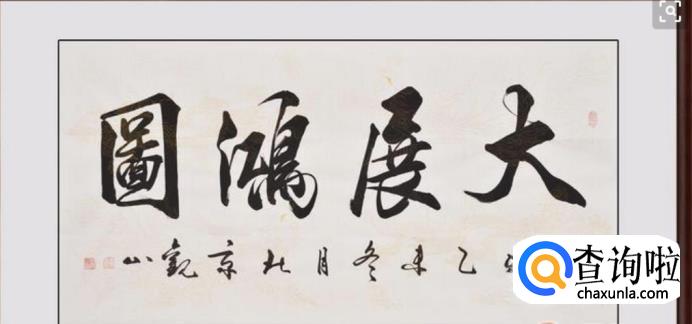 大展鴻圖
乙未冬月北京觀山
查询啦
chaxunla.com